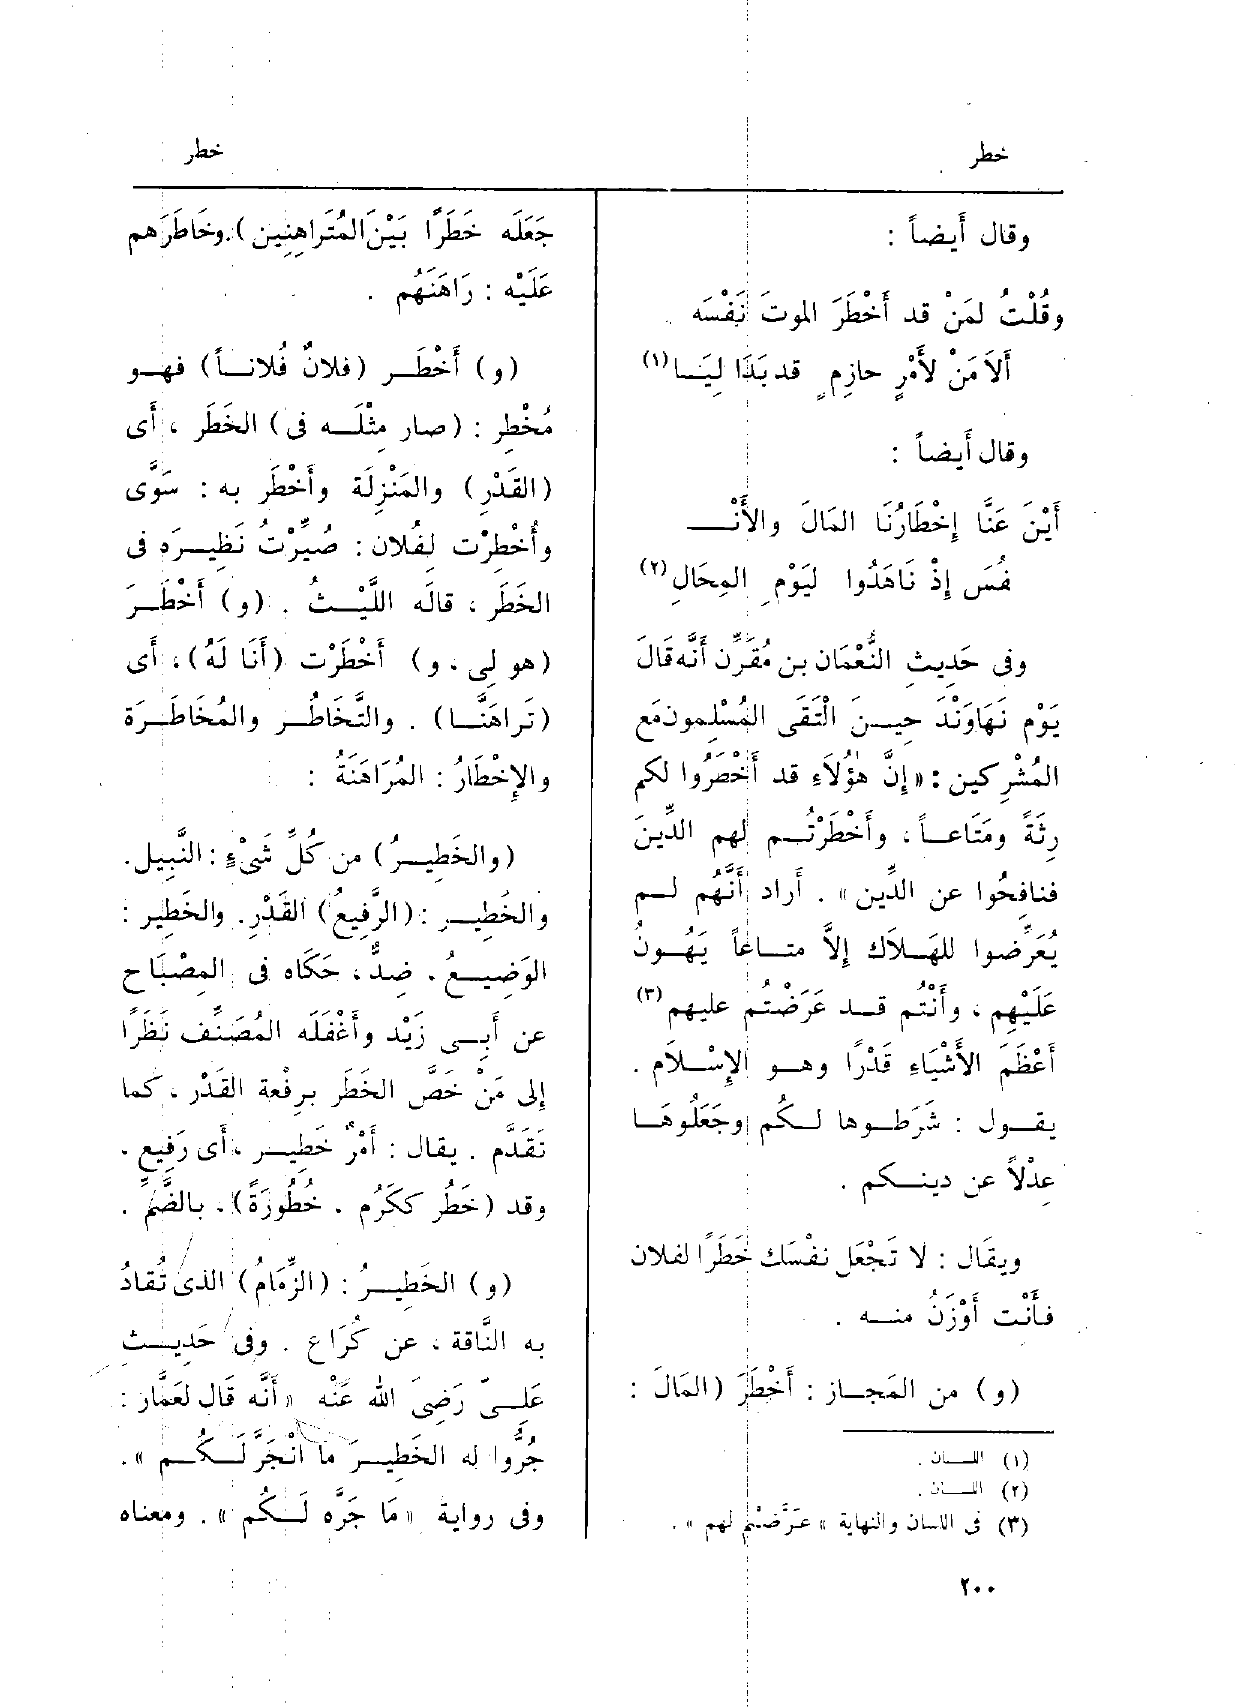 خطر
خطر
وقال أَيضاً :
وقُلْتُ لمَنْ قد أَخْطَرَ الموتَ نَفْسَه
أَلاَ مَنْ لأَمْرٍ حازِمٍ قد بَدَا لِيَا(١)
وقال أَيضاً :
أَيْنَ عَنَّا إِخْطَارُنَا المَالَ والأَنْـ
فُسَ إِذْ نَاهَدُوا لِيَوْمِ المِحَالِ(٢)
وفى حَدِيثِ النُّعْمَان بن مُقَرِّن أَنَّه قَالَ
يَوْم نَهَاوَنْدَ حِيـنَ الْتَقَى المُسْلِمون مَع
المُشْرِكين : « إِنَّ هٰؤُلَاءِ قد أَخْصَرُوا لكم
رِثَّةً ومَتَاعـاً ، وأَخْطَرْتُم لهم الدِّينَ
فنافِحُوا عن الدِّين » . أَراد أَنَّهُم لـم
يُعَرِّضوا للهَلاك إِلاَّ متـاعاً يَهُونُ
عَلَيْهِم ، وأَنْتُم قـد عَرَضْتُم عليهم(٣)
أَعْظَمَ الأَشْيَاءِ قَدْرًا وهـو الإِسْلَام .
يقـول : شَرَطـوها لـكُم وجَعَلُوهَـا
عِدْلاً عن دينـكم .
ويقَال : لا تَجْعَل نفْسَك خَطَرًا لفلان
فأَنْت أَوْزَنُ منـه .
(و) من المَجـاز : أَخْطَرَ (المَالَ :
(١) اللسان .
(٢) اللسان .
(٣) فى اللسان والنهاية « عرَّضْتُم لهم » .
جَعَلَه خَطَرًا بَيْنَ المُتَراهِنِين ). وخَاطَرَهم
عَلَيْه : رَاهَنَهُم .
(و) أَخْطَـر (فلانٌ فُلانـاً) فهـو
مُخْطِر : (صار مِثْلَـه فى) الخَطَر ، أَى
(القَدْرِ) والمَنْزِلَة وأَخْطَر به : سَوَّى
وأُخْطِرْت لِفُلان : صُيِّرْتُ نَظِيـرَه فى
الخَطَر ، قالَه اللَّيْـثُ . (و) أَخْطَـرَ
(هو لِى ، و) أَخْطَرْت (أَنَا لَهُ) ، أَى
(تَراهَنَّـا) . والتَّخَاطُـر والمُخَاطَـرَة
والإِخْطَارُ : المُرَاهَنَةُ :
(والخَطِيـرُ) من كُلِّ شَىْءٍ : النَّبِيل.
والخَطِيـر : (الرَّفِيعُ) القَدْرِ. والخَطِير :
الوَضِيـعُ ، ضِدٌّ ، حَكَاه فى المِصْبَاح
عن أَبِـى زَيْد وأَغْفَلَه المُصَنِّف نَظَرًا
إِلى مَنْ خَصَّ الخَطَر بِرفْعة القَدْر ، كما
تَقَدَّم . يقال : أَمْرٌ خَطِيـر ، أَى رَفِيع .
وقد (خَطُر ككَرُم ، خُطُورَةً) ، بالضَّمِّ .
(و) الخَطِيـرُ : (الزِّمَامُ) الذى تُقادُ
به النَّاقة ، عن كُرَاع . وفى حَدِيـث
عَلِـىّ رَضِىَ الله عَنْه « أَنَّه قَال لعَمَّار :
جُرُّوا له الخَطِيـرَ ما انْجَرَّ لَـكُـم » .
وفى رواية « مَا جَرَّه لَـكُم » . ومعناه
٢٠٠